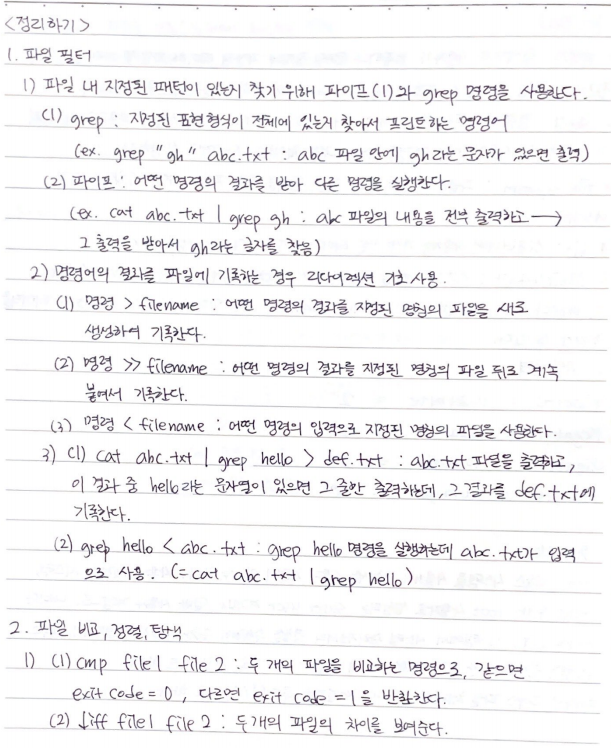 <정리하기>
1. 파일 필터
1) 파일 내 지정된 패턴이 있는지 찾기 위해 파이프(|)와 grep 명령을 사용한다.
(1) grep : 지정된 표현형식이 전체에 있는지 찾아서 프린트하는 명령어
(ex. grep "gh" abc.txt : abc 파일 안에 gh라는 문자가 있으면 출력)
(2) 파이프 : 어떤 명령의 결과를 받아 다른 명령을 실행한다.
(ex. cat abc.txt | grep gh : abc 파일의 내용을 전부 출력하고 →
그 출력을 받아서 gh라는 글자를 찾음)
2) 명령어의 결과를 파일에 기록하는 경우 리다이렉션 기호 사용.
(1) 명령 > filename : 어떤 명령의 결과를 지정된 명칭의 파일을 새로
생성하여 기록한다.
(2) 명령 >> filename : 어떤 명령의 결과를 지정된 명칭의 파일 뒤로 계속
붙여서 기록한다.
(3) 명령 < filename : 어떤 명령의 입력으로 지정된 명칭의 파일을 사용한다.
3) (1) cat abc.txt | grep hello > def.txt : abc.txt 파일을 출력하고,
이 결과 중 hello라는 문자열이 있으면 그 줄만 출력하는데, 그 결과를 def.txt에
기록한다.
(2) grep hello < abc.txt : grep hello 명령을 실행하는데 abc.txt가 입력
으로 사용. (= cat abc.txt | grep hello)
2. 파일 비교, 정렬, 탐색
1) (1) cmp file1 file2 : 두 개의 파일을 비교하는 명령으로, 같으면
exit code = 0, 다르면 exit code = 1을 반환한다.
(2) diff file1 file2 : 두 개의 파일의 차이를 보여준다.